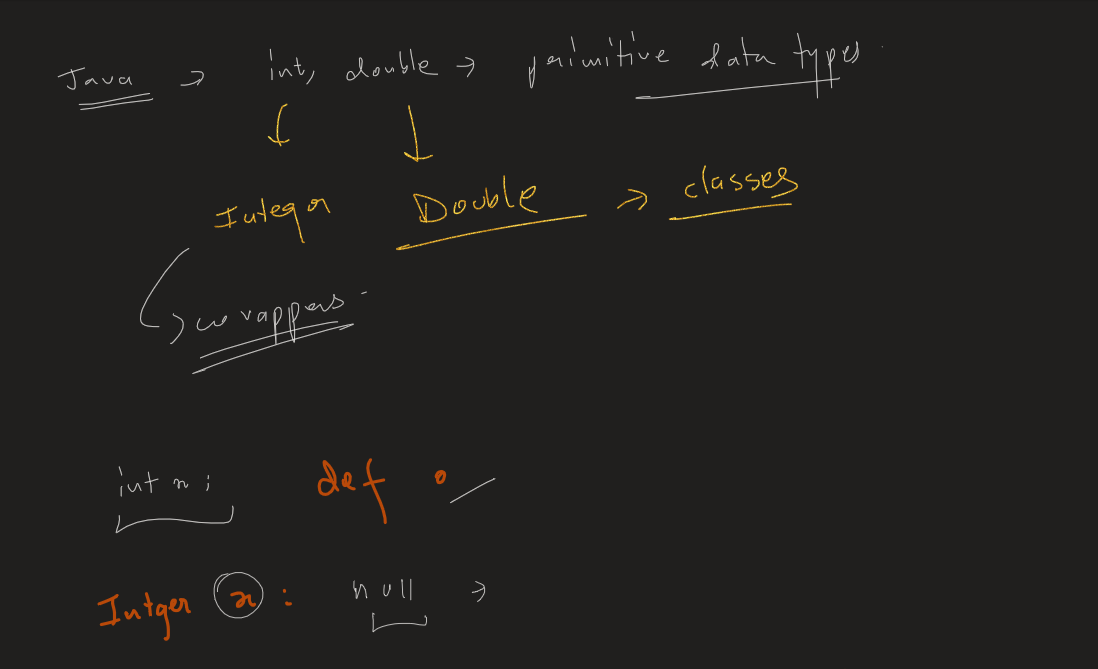 Java → int, double → primitive data types
Integer Double → classes
wrappers
int x; def 0
Intger x : null →